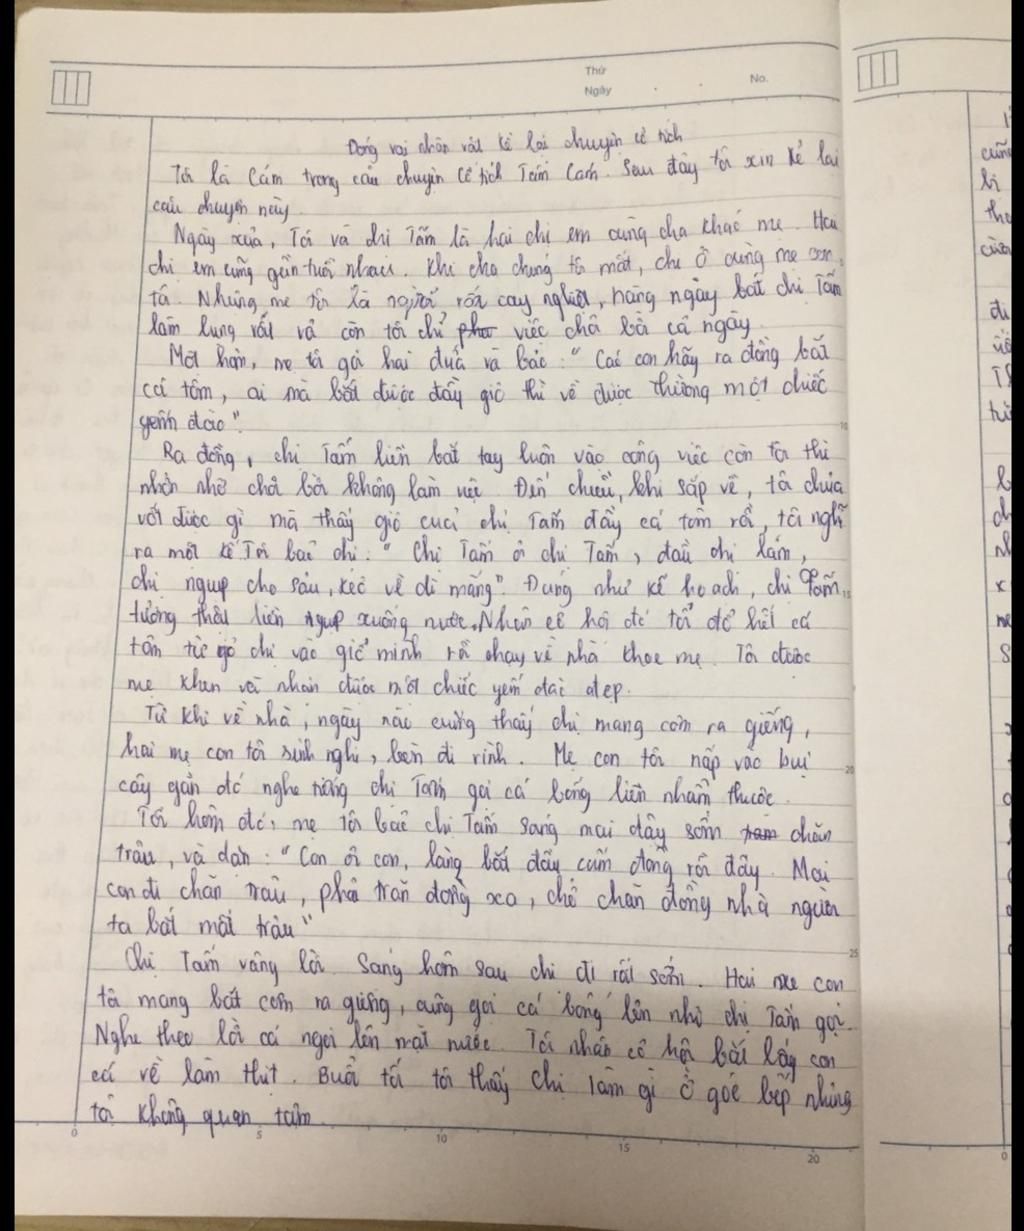 Thứ
Ngày
No.
Đóng vai nhân vật kể lại chuyện cổ tích
Tôi là Cám trong câu chuyện cổ tích Tấm Cám. Sau đây tôi xin kể lại
câu chuyện này.
Ngày xửa, Tôi và chị Tấm là hai chị em cùng cha khác mẹ. Hai
chị em cũng gần tuổi nhau. Khi cha chúng tôi mất, chị ở cùng mẹ con
tôi. Nhưng mẹ tôi là người rất cay nghiệt, hàng ngày bắt chị Tấm
làm lụng vất vả còn tôi chỉ việc chơi bời cả ngày.
Một hôm, mẹ tôi gọi hai đứa và bảo: "Các con hãy ra đồng bắt
cá tôm, ai mà bắt được đầy giỏ thì về được thưởng một chiếc
yếm đào".
Ra đồng, chị Tấm liền bắt tay luôn vào công việc còn tôi thì
nhởn nhơ chơi bời không làm việc. Đến chiều, khi sắp về, tôi chưa
vớt được gì mà thấy giỏ của chị Tấm đầy cá tôm rồi, tôi nghĩ
ra một kế Tôi bảo chị: "Chị Tấm ơi chị Tấm, đầu chị lấm,
chị ngụp cho sâu, kẻo về dì mắng". Đúng như kế hoạch, chị Tấm
tưởng thật liền ngụp xuống nước. Nhân cơ hội đó tôi đổ hết cá
tôm từ giỏ chị vào giỏ mình rồi chạy về nhà khoe mẹ. Tôi được
mẹ khen và nhận được một chiếc yếm đào đẹp.
Từ khi về nhà, ngày nào cũng thấy chị mang cơm ra giếng,
hai mẹ con tôi sinh nghi, bèn đi rình. Mẹ con tôi nấp vào bụi
cây gần đó nghe tiếng chị Tấm gọi cá bống liền nhẩm thuộc.
Tối hôm đó, mẹ tôi bảo chị Tấm sáng mai dậy sớm chăn
trâu, và dặn: "Con ơi con, làng bắt đầu cấm đồng rồi đấy. Mai
con đi chăn trâu, phải chăn đồng xa, chớ chăn đồng nhà người
ta bắt mất trâu"
Chị Tấm vâng lời. Sáng hôm sau chị đi rất sớm. Hai mẹ con
tôi mang bát cơm ra giếng, cũng gọi cá bống lên như chị Tấm gọi.
Nghe theo lời cá ngoi lên mặt nước. Tôi nhân cơ hội bắt lấy con
cá về làm thịt. Buổi tối tôi thấy chị làm gì ở góc bếp nhưng
tôi không quan tâm.